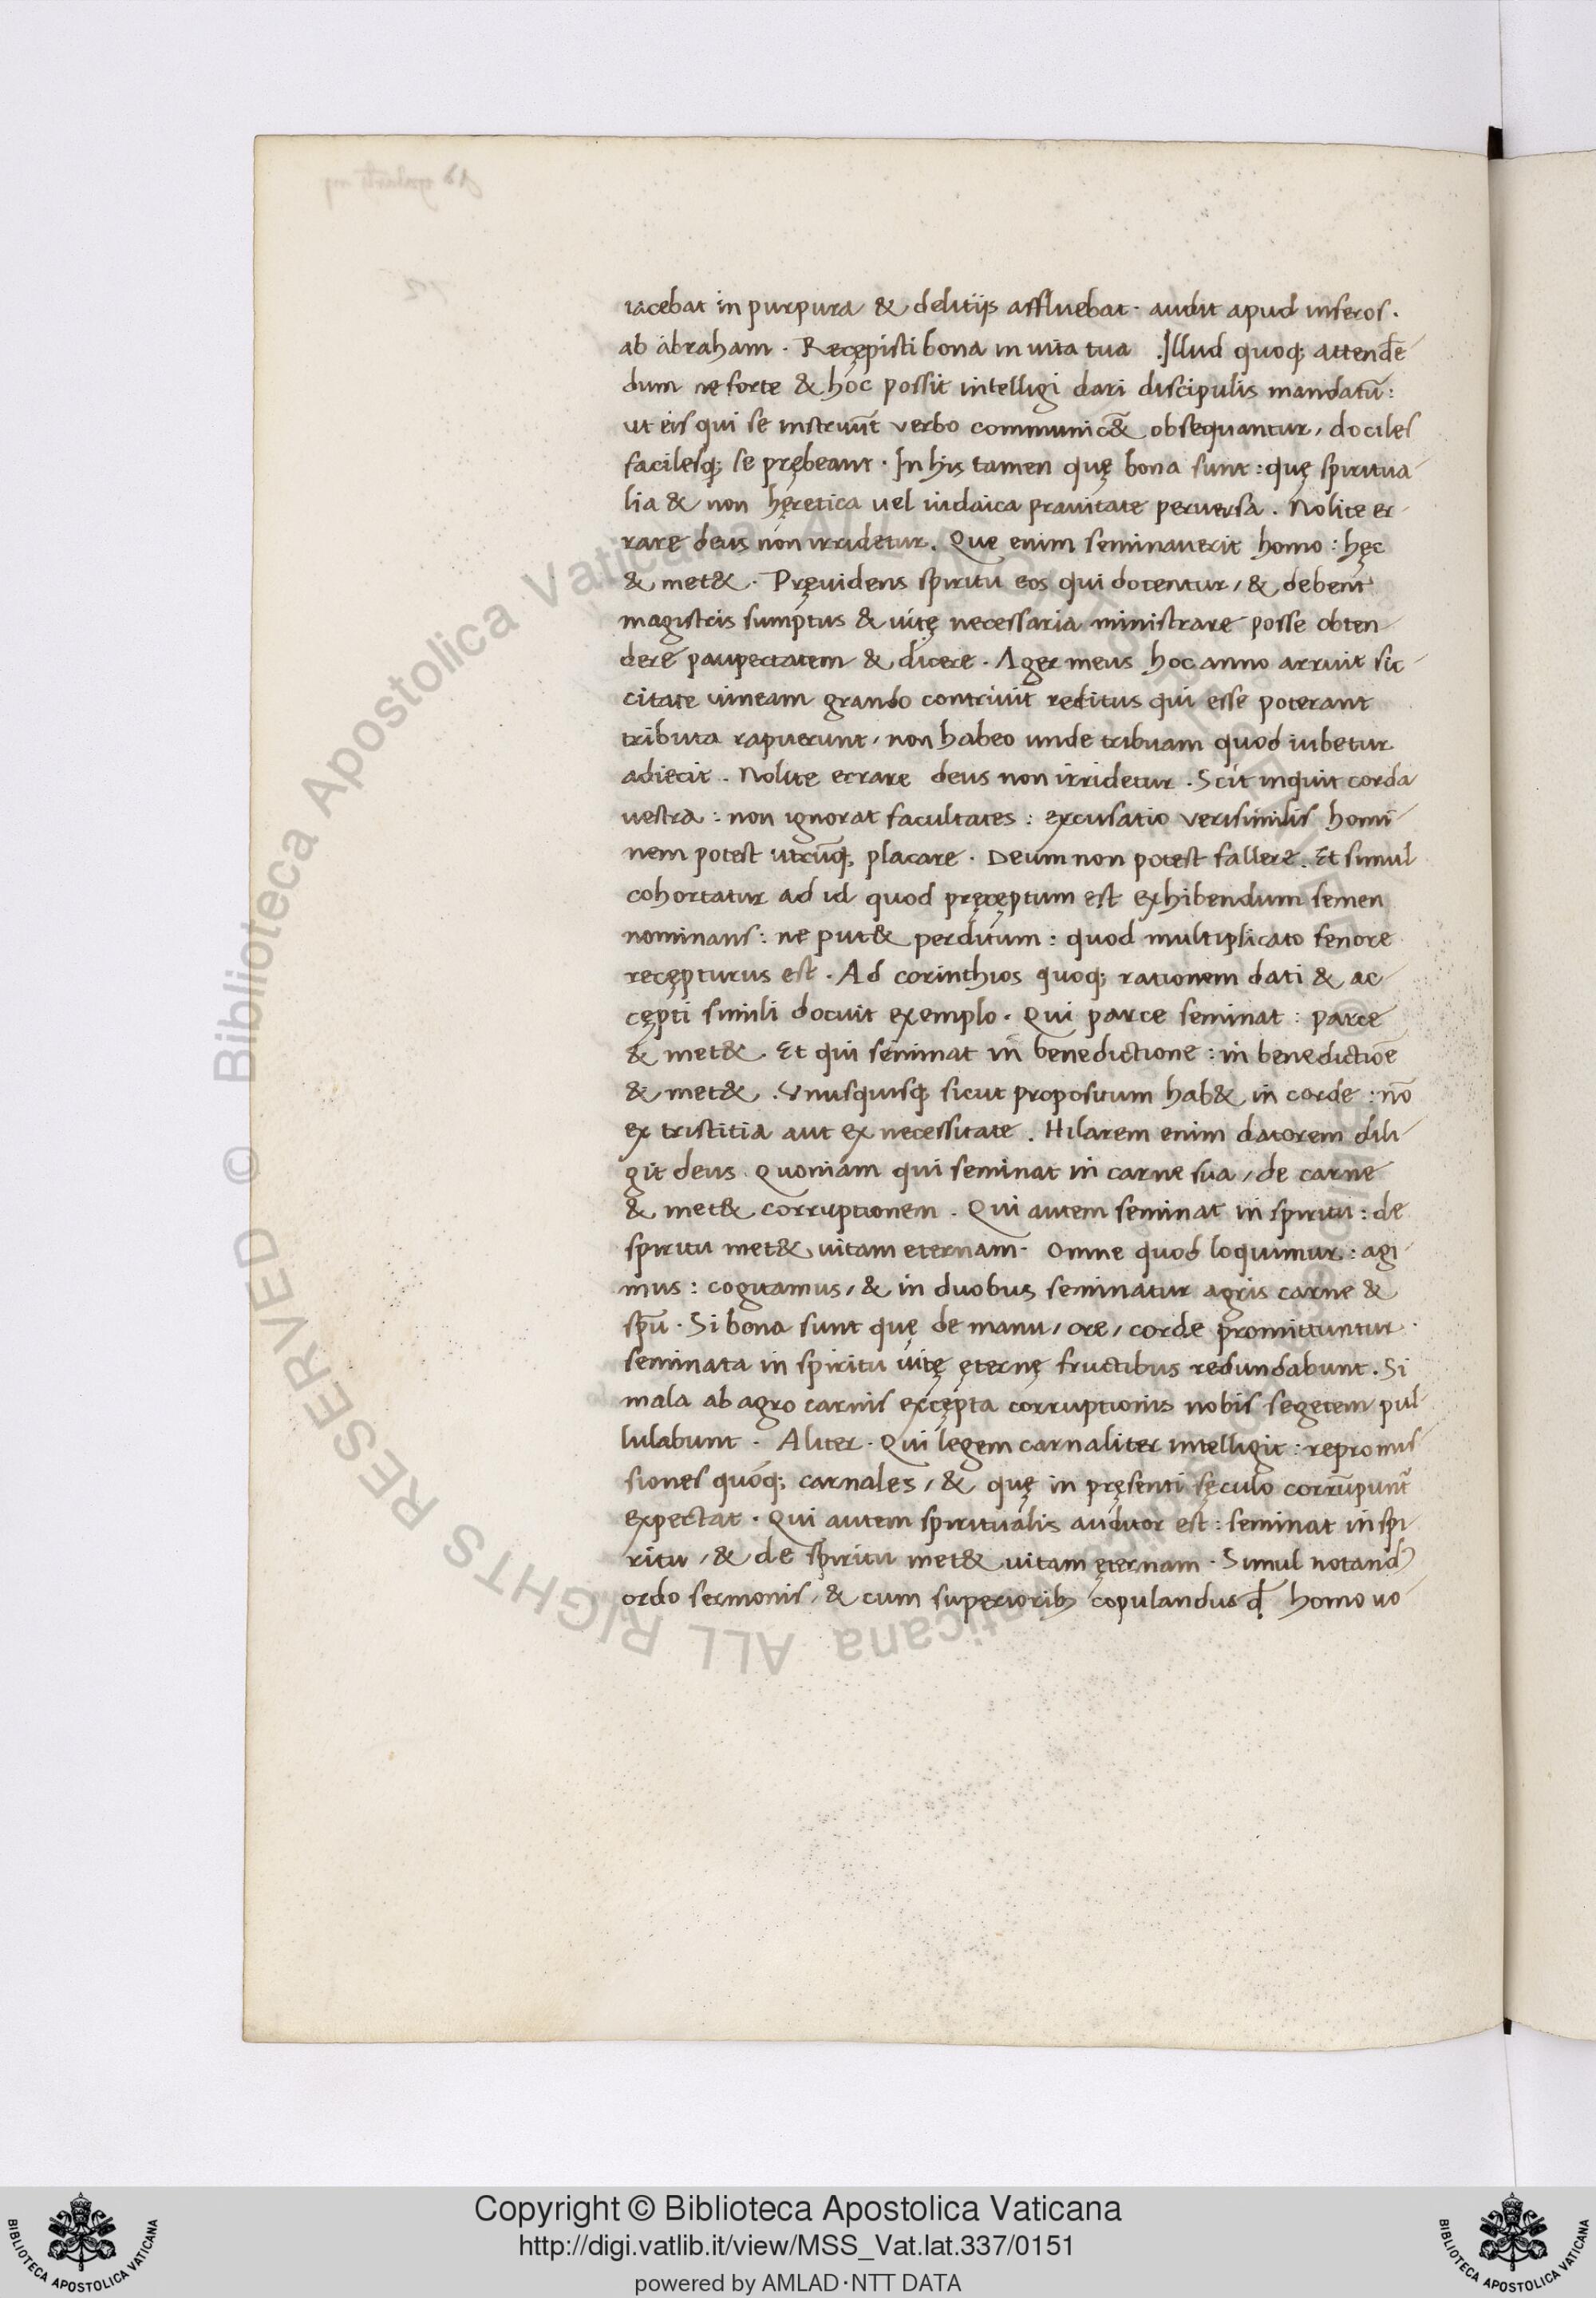 iacebat in purpura & delitijs affluebat · audit apud inferos ·
ab abraham · Recępisti bona in uita tua . Illud quoq; attendē
dum ne forte & hoc possit intelligi dari discipulis mandatū :
ut eis qui se instruūt verbo communic& obsequantur, dociles
facilesq; se prębeant · In his tamen quę bona sunt : quę spiritua
lia & non hęretica uel iudaica prauitate peruersa . Nolite er
rare deus non irridetur . Que enim seminauerit homo : hęc
& met& · Pręuidens spiritu eos qui docentur, & debent
magistris sumptus & uitę necessaria ministrare posse obten
dere paupertatem & dicere · Ager meus hoc anno arruit sic
citate uineam grando contriuit reditus qui esse poterant
tributa rapuerunt, non habeo unde tribuam quod iubetur
adiecit . Nolite errare deus non irridetur . Scit inquit corda
uestra : non ignorat facultates : excusatio verisimilis homi
nem potest utcūq; placare · Deum non potest fallere . Et simul
cohortatur ad id quod pręcęptum est exhibendum semen
nominans : ne put& perditum : quod multiplicato fenore
recępturus est . Ad corinthios quoq; rationem dati & ac
cępti simili docuit exemplo . Qui parce seminat : parce
& met& . Et qui seminat in benedictione : in benedictiōe
& met& . Vnusquisq; sicut propositum hab& in corde : nō
ex tristitia aut ex necessitate . Hilarem enim datorem dili
git deus . Quoniam qui seminat in carne sua, de carne
& met& corruptionem . Qui autem seminat in spiritu : de
spiritu met& uitam eternam · Omne quod loquimur : agi
mus : cogitamus, & in duobus seminatur agris carne &
spū · Si bona sunt quę de manu, ore, corde promittuntur ·
seminata in spiritu uitę ęternę fructibus redundabunt . Si
mala ab agro carnis excępta corruptionis nobis segetem pul
lulabunt . Aliter . Qui legem carnaliter intelligit : repromis
siones quoq; carnales, & quę in pręsenti sęculo corrūpunt̄
expectat . Qui autem spiritualis auditor est : seminat in spi
ritu, & de spiritu met& uitam ęternam . Simul notand
ordo sermonis, & cum superiorib; copulandus ꝙ homo uo
© Biblioteca Apostolica Vaticana ALL RIGHTS RESERVED
Copyright © Biblioteca Apostolica Vaticana
http://digi.vatlib.it/view/MSS_Vat.lat.337/0151
powered by AMLAD·NTT DATA
BIBLIOTECA APOSTOLICA VATICANA
BIBLIOTECA APOSTOLICA VATICANA